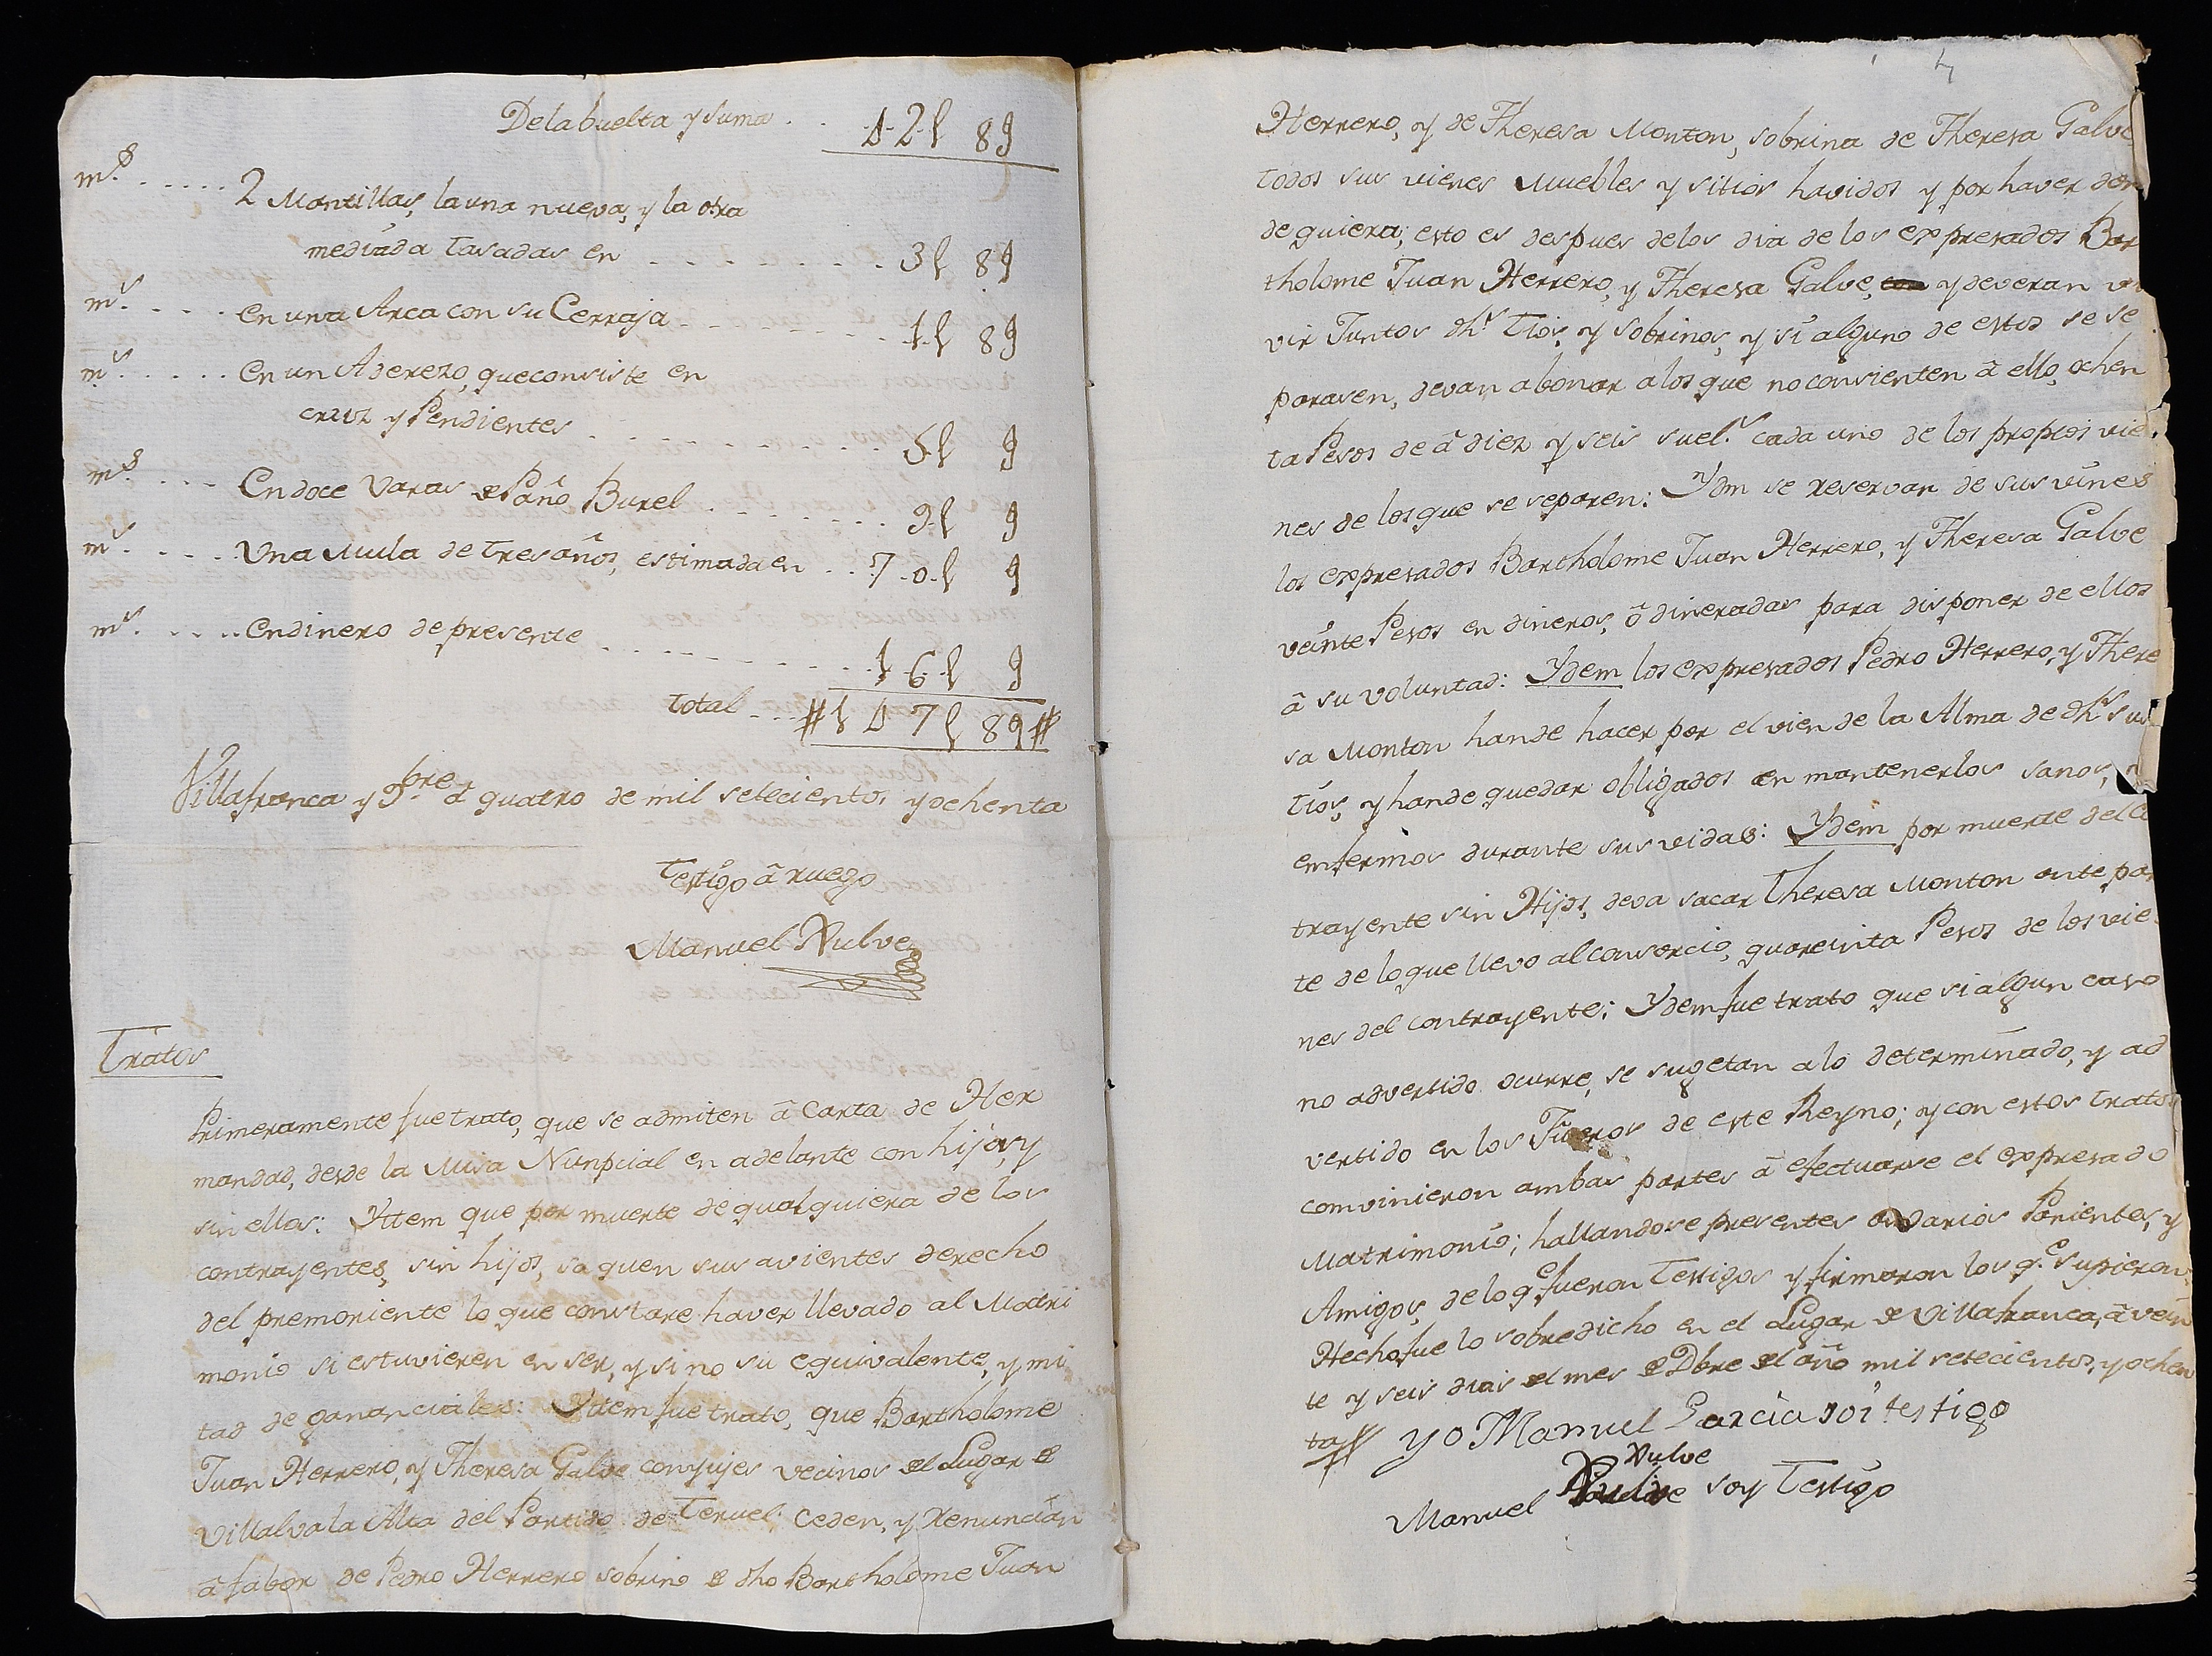 De la buelta y suma . . 42 l 8 s
m.s ..... 2 Mantillas, la una nueva, y la otra
mediada tasadas en . . . . . . . . 3 l 8 s
m.s . . . . En una Arca con su Cerraja . . . . . . . 1 l 8 s
m.s ..... En un Aderezo, que consiste en
cruz y Pendientes . . . . . . . . . 5 l s
m.s .... En doce Varas de Paño Burel . . . . . . . 9 l s
m.s .... Una Mula de tres años, estimada en . . 70 l s
m.s .... En dinero de presente . . . . . . . . . 16 l s
total ... # 147 l 8 s #
Villafranca y 9bre â quatro de mil setecientos y ochenta
Testigo â ruego
Manuel Nulve
Tratos
Primeramente fue trato, que se admiten â Carta de Her
mandad, desde la Misa Nunpcial en adelante con hijos, y
sin ellos: Yttem que por muerte de qualquiera de los
contrayentes, sin hijos, saquen sus avientes derecho
del premoriente lo que constare haver llevado al Matri
monio si estuvieren en ser, y si no su equivalente, y mi
tad de gananciales: Yttem fue trato, que Bartholome
Juan Herrero, y Theresa Galve conyujes vecinos del Lugar de
Villalva la Alta del Partido de Teruel ceden, y renuncian
â fabor de Pedro Herrero sobrino de dho Bartholome Juan
4
Herrero, y de Theresa Monton, sobrina de Theresa Galve
todos sus vienes Muebles y sitios havidos y por haver don
de quiera; esto es despues de los dia de los expresados Bar
tholome Juan Herrero, y Theresa Galve, y deveran vi
vir Juntos dhs Tios, y Sobrinos, y si alguno de estos se se
parasen, devan abonar a los que no consienten â ello, ochen
ta Pesos de â diez y seis suel.s cada uno de los propios vie
nes de los que se separen: Ydm se reservan de sus vines
los expresados Bartholome Juan Herrero, y Theresa Galve
veinte Pesos en dineros, ô dineradas para disponer de ellos
â su voluntad: Ydem los expresados Pedro Herrero, y There
sa Monton han de hacer por el vien de la Alma de dhs sus
tios, y han de quedar obligados en mantenerlos sanos, y
enfermos durante sus vidas: Ydem por muerte del con
trayente sin Hijos, deva sacar Theresa Monton ante par
te de lo que llevo al consorcio, quareinta Pesos de los vie
nes del contrayente: Ydem fue trato que si algun caso
no advertido ocurre, se sugetan a lo determinado, y ad
vertido en los Fueros de este Reyno; y con estos tratos
convinieron ambas partes â efectuarse el expresado
Matrimonio; hallandose presentes varios Parientes, y
Amigos, de lo qe fueron Testigos y firmaron los qe supieron
Hecho fue lo sobredicho en el Lugar de Villafranca, â vein
te y seis dias del mes de Dbre del año mil setecientos, y ochen
ta #
yo Manuel Garcia soi testigo
Nulve
Manuel soy Testigo